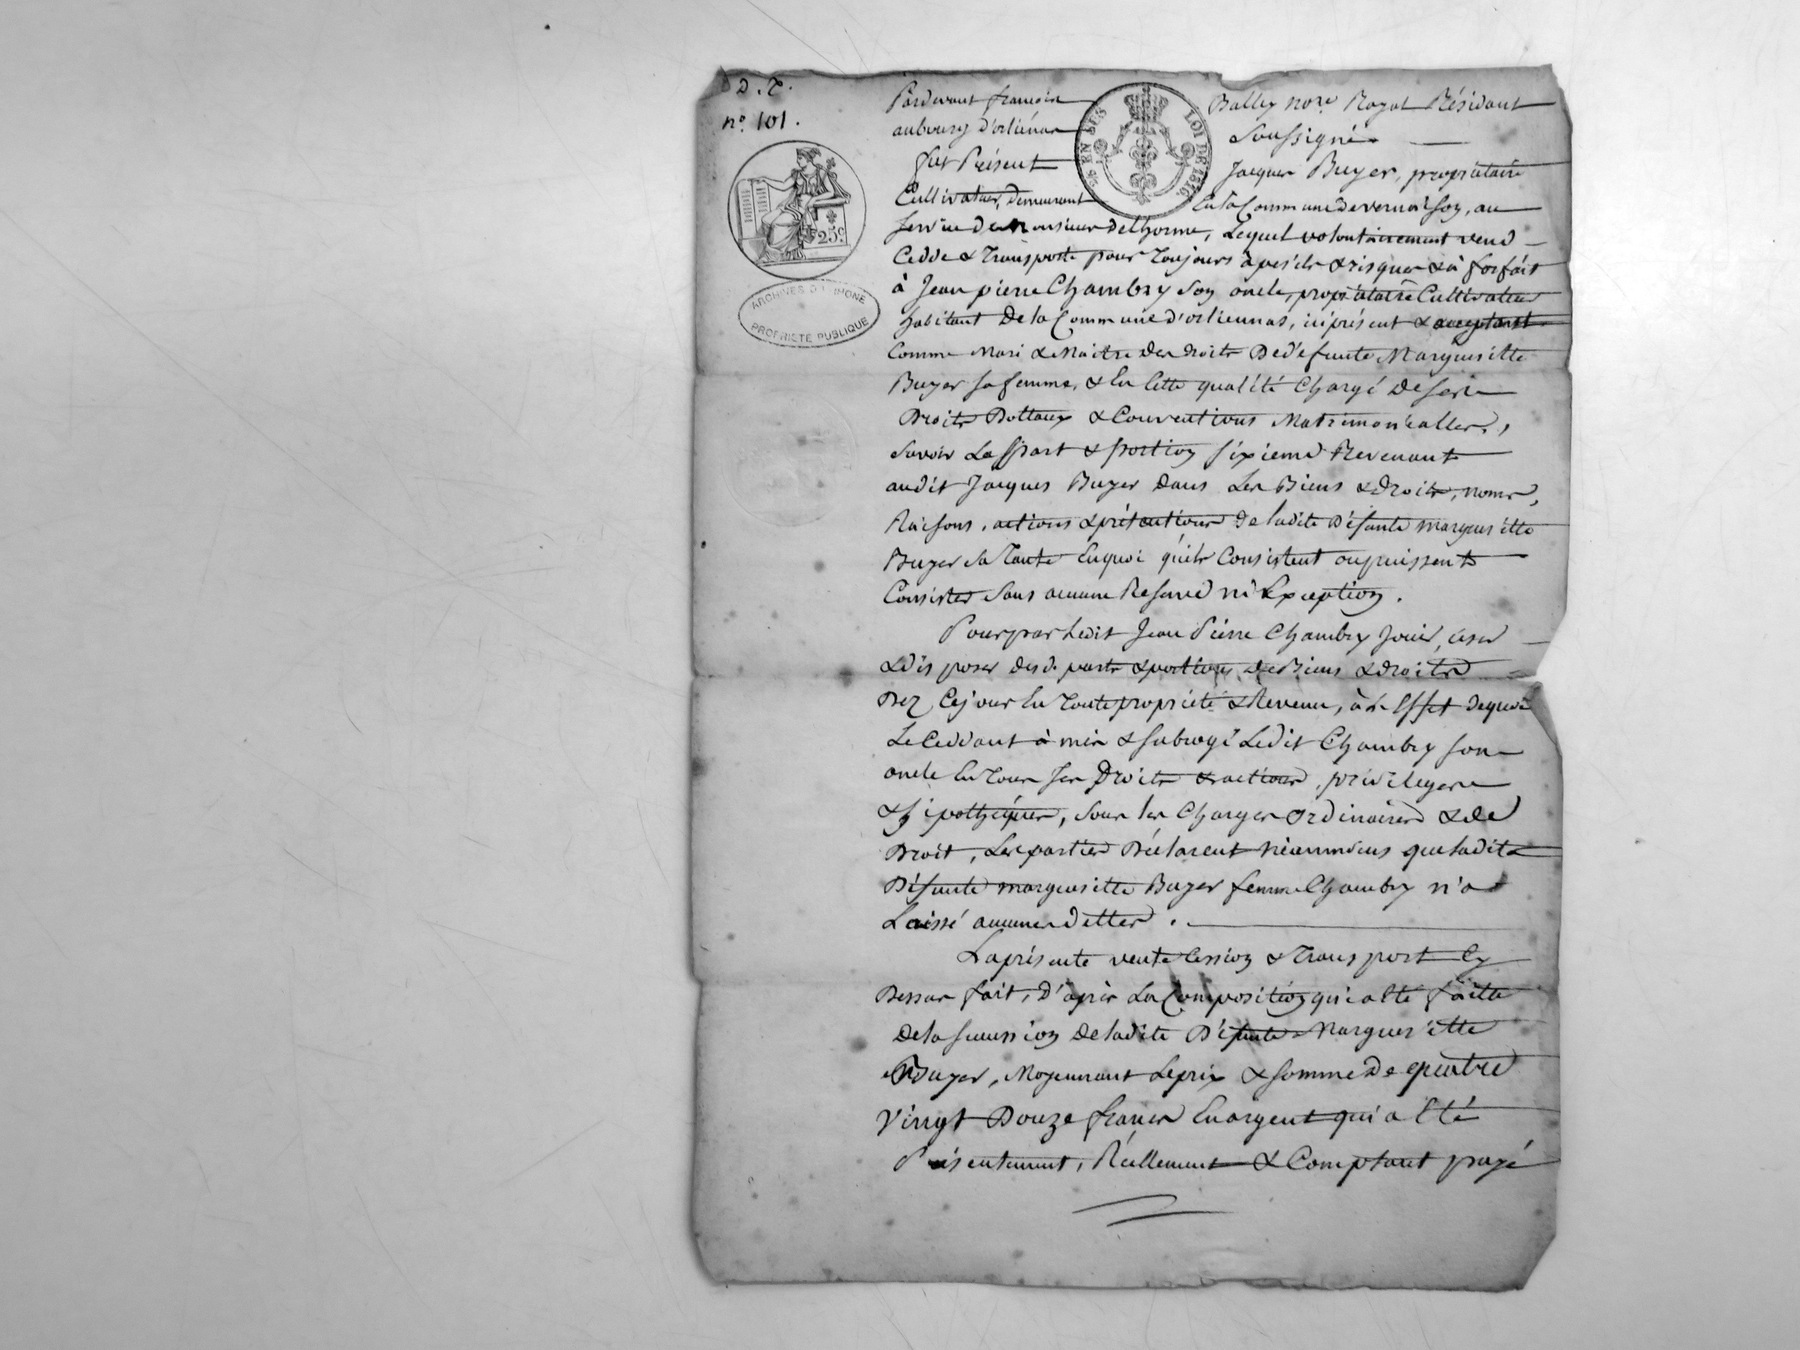 D. T.
nº. 101.
25c.
ARCHIVES D LIMONE
PROPRIETE PUBLIQUE
EN SUS LOI DE 1816
Pardevant francois Balley nore Royal Résidant
aubourg d'orliénas Soussigné
fut Présent Jacques Buyer, propriétaire
Cultivateur, demeurant En la Commune de vernaison, au
Service de monsieur delhorme, Lequel volontairement vend
Cedde & Transporte pour Toujours à perils & risques & à forfait
à Jean pierre Chambry Son oncle, propriétaire Cultivateur
habitant De la Commune d'orliennas, ici présent & acceptant
Comme Mari & Maitre des droits De défunte Margueritte
Buyer sa femme, & En Cette qualité Chargé de ses
Droits Dottaux & Conventions Matrimonialles,
Savoir La part & portion sixieme Revenant
audit Jacques Buyer dans Les Biens & droits, noms,
Raisons, actions & prétentions de ladite Défunte margueritte
Buyer sa Tante En quoi qu'ils Consistent ou puissent
Consister Sans aucune Reserve ni Exception.
Pour par Ledit Jean Pierre Chambry Jouir, user
& disposer desd. parts & portions de Biens & droits
Dez Cejour En Toute propriété & Revenu, à l'Effet dequoi
Le Ceddant à mis & subrogé Ledit Chambry son
oncle En Tous ses Droits & actions, privileges
& hipothéques, Sous les Charges ordinaires & de
Droit, Les parties Déclarent néanmoins que ladite
Défunte margueritte Buyer femme Chambry n'a
Laissé aucunes dettes.
La présente vente Cession & Transport Cy
Dessus fait, d'après La Composition qui a Eté faitte
de la succession de ladite Défunte Margueritte
Buyer, Moyennant Leprix & somme de quatre
Vingt Douze francs En argent qui a Eté
Présentement, Réellement & Comptant payé